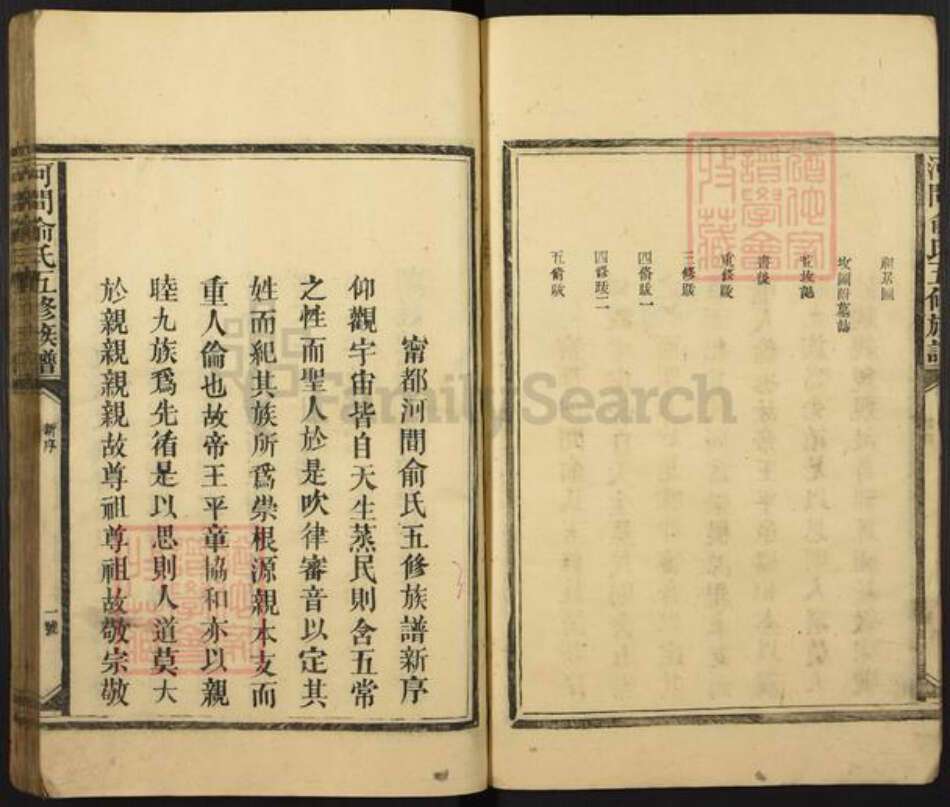 祖基圖
坟圖附墓誌
並坟記
書後
重修跋
三修跋
四脩跋一
四脩跋二
五脩跋
河間俞氏五修族譜
甯都河間俞氏五修族譜新序
仰觀宇宙皆自天生蒸民則含五常
之性而聖人於是吹律審音以定其
姓而紀其族所爲崇根源親本支而
重人倫也故帝王平章協和亦以親
睦九族爲先脩是以思則人道莫大
於親親親親故尊祖尊祖故敬宗敬
河間俞氏五修族譜
新序
一號
FamilySearch